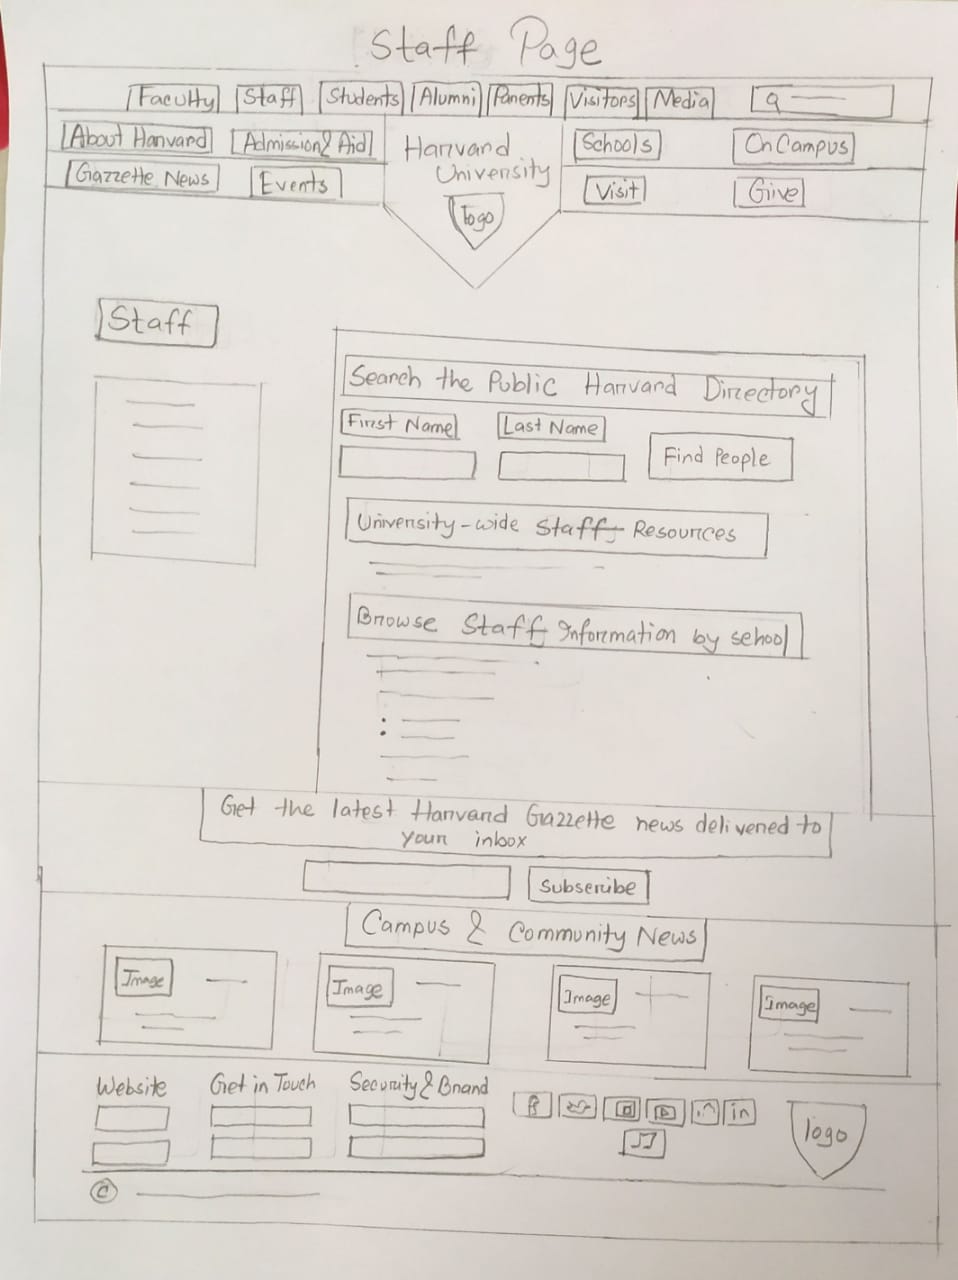 Staff Page
Faculty Staff Students Alumni Parents Visitors Media
About Harvard Admission & Aid Harvard University Schools OnCampus
Gazzette News Events Visit Give
logo
Staff
Search the Public Harvard Directory
First Name Last Name Find People
University-wide Staff Resources
Browse Staff Information by school
Get the latest Harvard Gazzette news delivered to
your inbox
Subscribe
Campus & Community News
Image Image Image Image
Website Get in Touch Security & Brand
in
logo
©